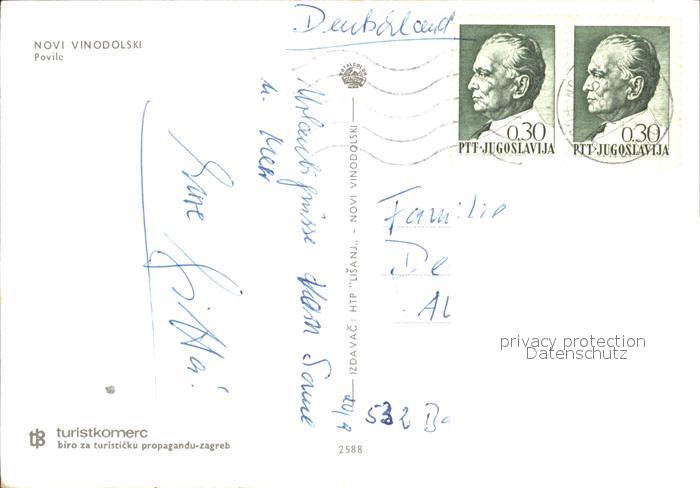 NOVI VINODOLSKI
Povile
Deutschland
0.30
PTT·JUGOSLAVIJA
0.30
PTT·JUGOSLAVIJA
Urlaubsgrüsse vom Sonne
u. Meer
Eure Gitta!
Familie
De
Al
532 Ba
privacy protection
Datenschutz
IZDAVAČ: HTP "LIŠANJ„ - NOVI VINODOLSKI
turistkomerc
biro za turističku propagandu-zagreb
2588